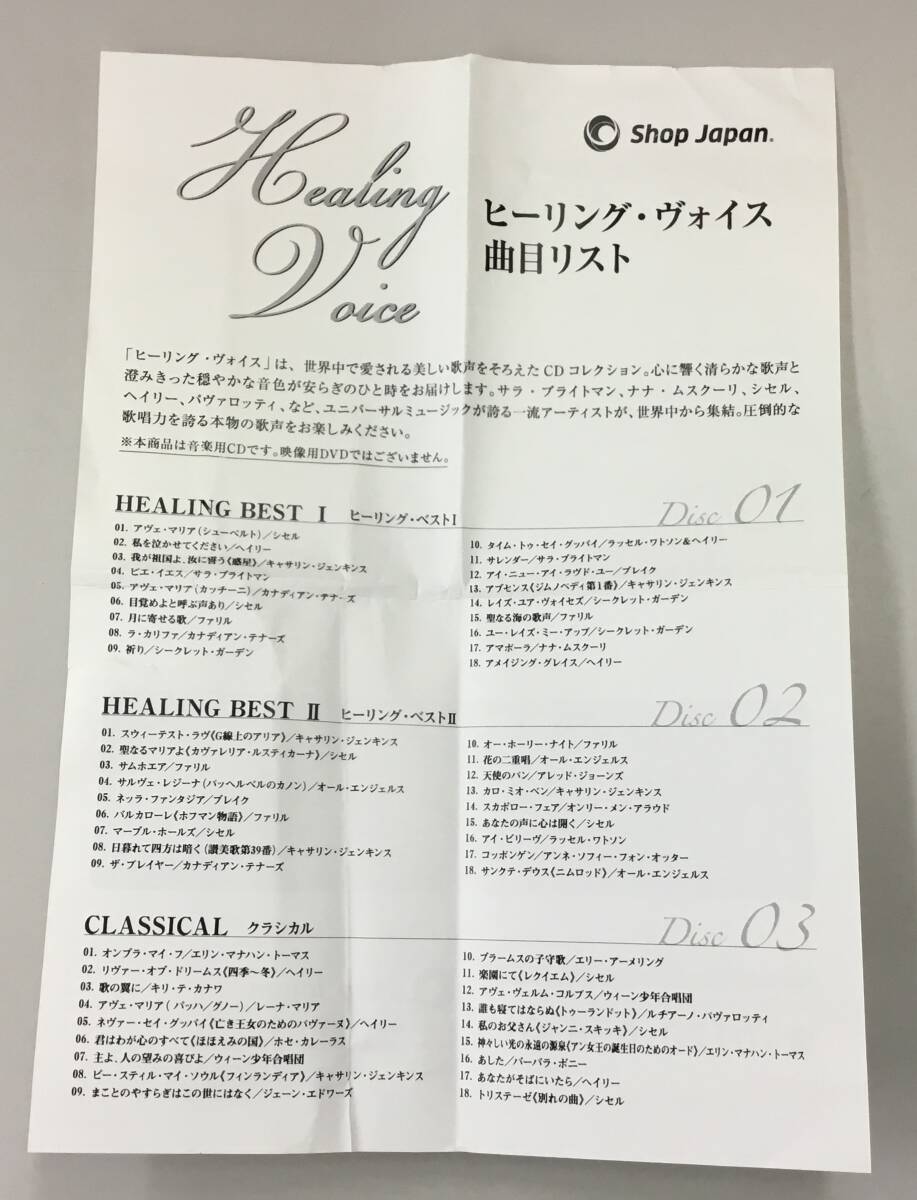 Healing
Voice
Shop Japan.
ヒーリング・ヴォイス
曲目リスト
「ヒーリング・ヴォイス」は、世界中で愛される美しい歌声をそろえたCDコレクション。心に響く清らかな歌声と
澄みきった穏やかな音色が安らぎのひと時をお届けします。サラ・ブライトマン、ナナ・ムスクーリ、シセル、
ヘイリー、パヴァロッティ、など、ユニバーサルミュージックが誇る一流アーティストが、世界中から集結。圧倒的な
歌唱力を誇る本物の歌声をお楽しみください。
※本商品は音楽用CDです。映像用DVDではございません。
HEALING BEST Ⅰ ヒーリング・ベストⅠ
Disc 01
01. アヴェ・マリア(シューベルト)/シセル
02. 私を泣かせてください/ヘイリー
03. 我が祖国よ、汝に誓う《惑星》/キャサリン・ジェンキンス
04. ピエ・イエス/サラ・ブライトマン
05. アヴェ・マリア(カッチーニ)/カナディアン・テナーズ
06. 目覚めよと呼ぶ声あり/シセル
07. 月に寄せる歌/ファリル
08. ラ・カリファ/カナディアン・テナーズ
09. 祈り/シークレット・ガーデン
10. タイム・トゥ・セイ・グッバイ/ラッセル・ワトソン&ヘイリー
11. サレンダー/サラ・ブライトマン
12. アイ・ニュー・アイ・ラヴド・ユー/ブレイク
13. アブセンス《ジムノペディ第1番》/キャサリン・ジェンキンス
14. レイズ・ユア・ヴォイセズ/シークレット・ガーデン
15. 聖なる海の歌声/ファリル
16. ユー・レイズ・ミー・アップ/シークレット・ガーデン
17. アマポーラ/ナナ・ムスクーリ
18. アメイジング・グレイス/ヘイリー
HEALING BEST Ⅱ ヒーリング・ベストⅡ
Disc 02
01. スウィーテスト・ラヴ《G線上のアリア》/キャサリン・ジェンキンス
02. 聖なるマリアよ《カヴァレリア・ルスティカーナ》/シセル
03. サムホエア/ファリル
04. サルヴェ・レジーナ(パッヘルベルのカノン)/オール・エンジェルス
05. ネッラ・ファンタジア/ブレイク
06. バルカローレ《ホフマン物語》/ファリル
07. マーブル・ホールズ/シセル
08. 日暮れて四方は暗く(讃美歌第39番)/キャサリン・ジェンキンス
09. ザ・プレイヤー/カナディアン・テナーズ
10. オー・ホーリー・ナイト/ファリル
11. 花の二重唱/オール・エンジェルス
12. 天使のパン/アレッド・ジョーンズ
13. カロ・ミオ・ベン/キャサリン・ジェンキンス
14. スカボロー・フェア/オンリー・メン・アラウド
15. あなたの声に心は開く/シセル
16. アイ・ビリーヴ/ラッセル・ワトソン
17. コッポンゲン/アンネ・ソフィー・フォン・オッター
18. サンクテ・デウス《ニムロッド》/オール・エンジェルス
CLASSICAL クラシカル
Disc 03
01. オンブラ・マイ・フ/エリン・マナハン・トーマス
02. リヴァー・オブ・ドリームス《四季〜冬》/ヘイリー
03. 歌の翼に/キリ・テ・カナワ
04. アヴェ・マリア(バッハ/グノー)/レーナ・マリア
05. ネヴァー・セイ・グッバイ《亡き王女のためのパヴァーヌ》/ヘイリー
06. 君はわが心のすべて《ほほえみの国》/ホセ・カレーラス
07. 主よ、人の望みの喜びよ/ウィーン少年合唱団
08. ビー・スティル・マイ・ソウル《フィンランディア》/キャサリン・ジェンキンス
09. まことのやすらぎはこの世にはなく/ジェーン・エドワーズ
10. ブラームスの子守歌/エリー・アーメリング
11. 楽園にて《レクイエム》/シセル
12. アヴェ・ヴェルム・コルプス/ウィーン少年合唱団
13. 誰も寝てはならぬ《トゥーランドット》/ルチアーノ・パヴァロッティ
14. 私のお父さん《ジャンニ・スキッキ》/シセル
15. 神々しい光の永遠の源泉《アン女王の誕生日のためのオード》/エリン・マナハン・トーマス
16. あした/バーバラ・ボニー
17. あなたがそばにいたら/ヘイリー
18. トリステーゼ《別れの曲》/シセル